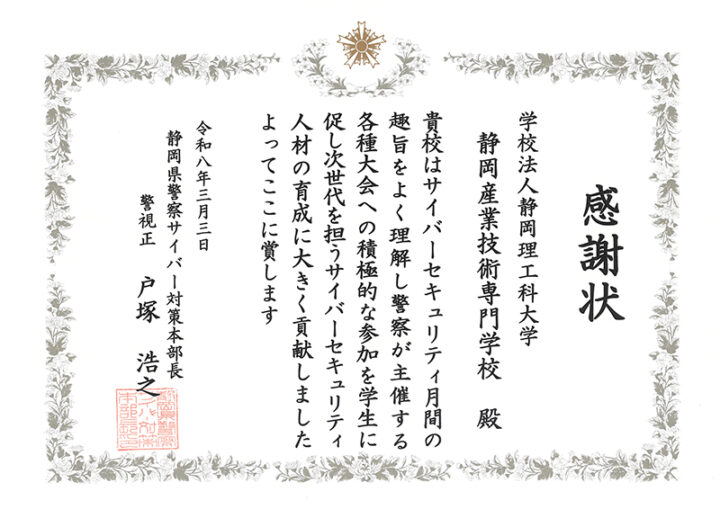 感謝状
学校法人静岡理工科大学
静岡産業技術専門学校 殿
貴校はサイバーセキュリティ月間の
趣旨をよく理解し警察が主催する
各種大会への積極的な参加を学生に
促し次世代を担うサイバーセキュリティ
人材の育成に大きく貢献しました
よってここに賞します
令和八年三月三日
静岡県警察サイバー対策本部長
警視正 戸塚 浩之